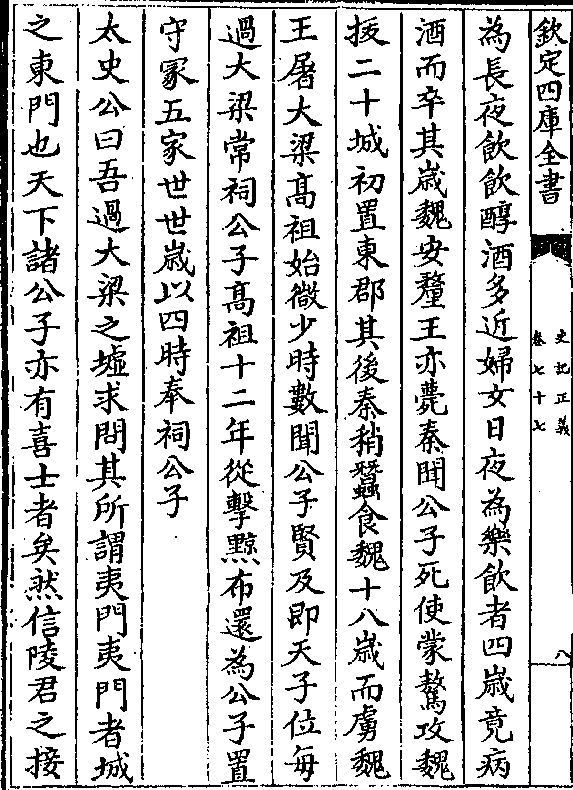 欽定四庫全書
史記正義
卷七十七
八
為長夜飲飲醇酒多近婦女日夜為樂飲者四歳竟病
酒而卒其歳魏安釐王亦薨秦聞公子死使蒙驁攻魏
拔二十城初置東郡其後秦稍蠶食魏十八歳而虜魏
王屠大梁髙祖始微少時數聞公子賢及即天子位每
過大梁常祠公子髙祖十二年從擊黥布還為公子置
守冢五家世世歳以四時奉祠公子
太史公曰吾過大梁之墟求問其所謂夷門夷門者城
之東門也天下諸公子亦有喜士者矣然信陵君之接